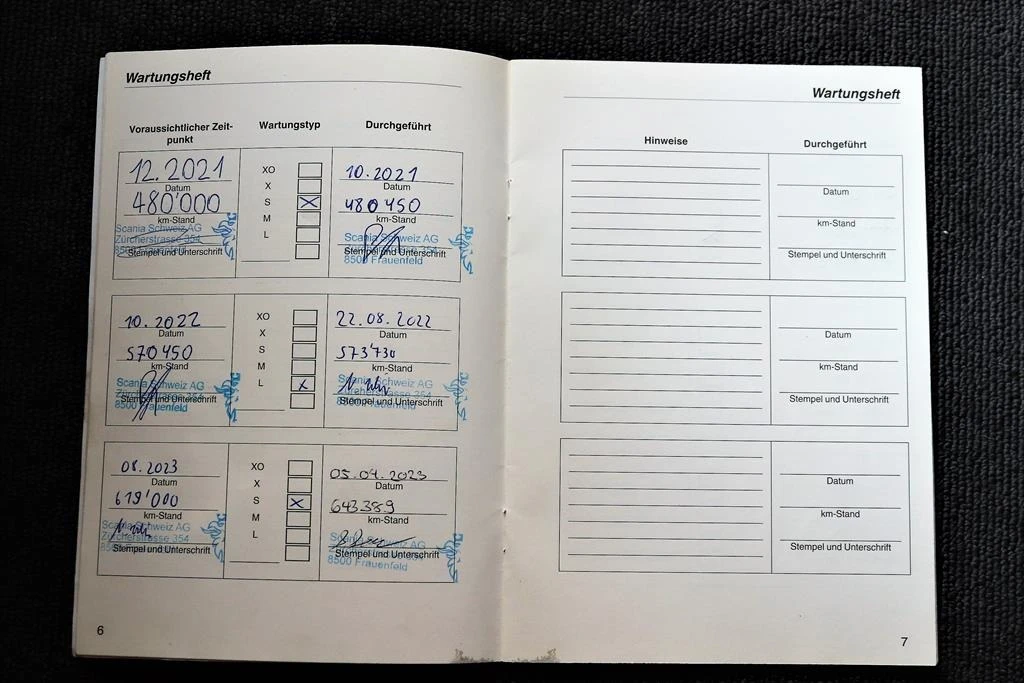 Wartungsheft
Voraussichtlicher Zeit-
punkt
Wartungstyp
Durchgeführt
12.2021
Datum
480'000
km-Stand
Scania Schweiz AG
Zürcherstrasse 354
8500 Frauenfeld
Stempel und Unterschrift
XO
X
S
M
L
10.2021
Datum
480450
km-Stand
Scania Schweiz AG
Zürcherstrasse 354
8500 Frauenfeld
Stempel und Unterschrift
10.2022
Datum
570450
km-Stand
Scania Schweiz AG
Zürcherstrasse 354
8500 Frauenfeld
Stempel und Unterschrift
XO
X
S
M
L
22.08.2022
Datum
573'730
km-Stand
Scania Schweiz AG
Zürcherstrasse 354
8500 Frauenfeld
Stempel und Unterschrift
08.2023
Datum
619'000
km-Stand
Scania Schweiz AG
Zürcherstrasse 354
8500 Frauenfeld
Stempel und Unterschrift
XO
X
S
M
L
05.04.2023
Datum
643389
km-Stand
Scania Schweiz AG
Stempel und Unterschrift
8500 Frauenfeld
6
Wartungsheft
Hinweise
Durchgeführt
Datum
km-Stand
Stempel und Unterschrift
Datum
km-Stand
Stempel und Unterschrift
Datum
km-Stand
Stempel und Unterschrift
7